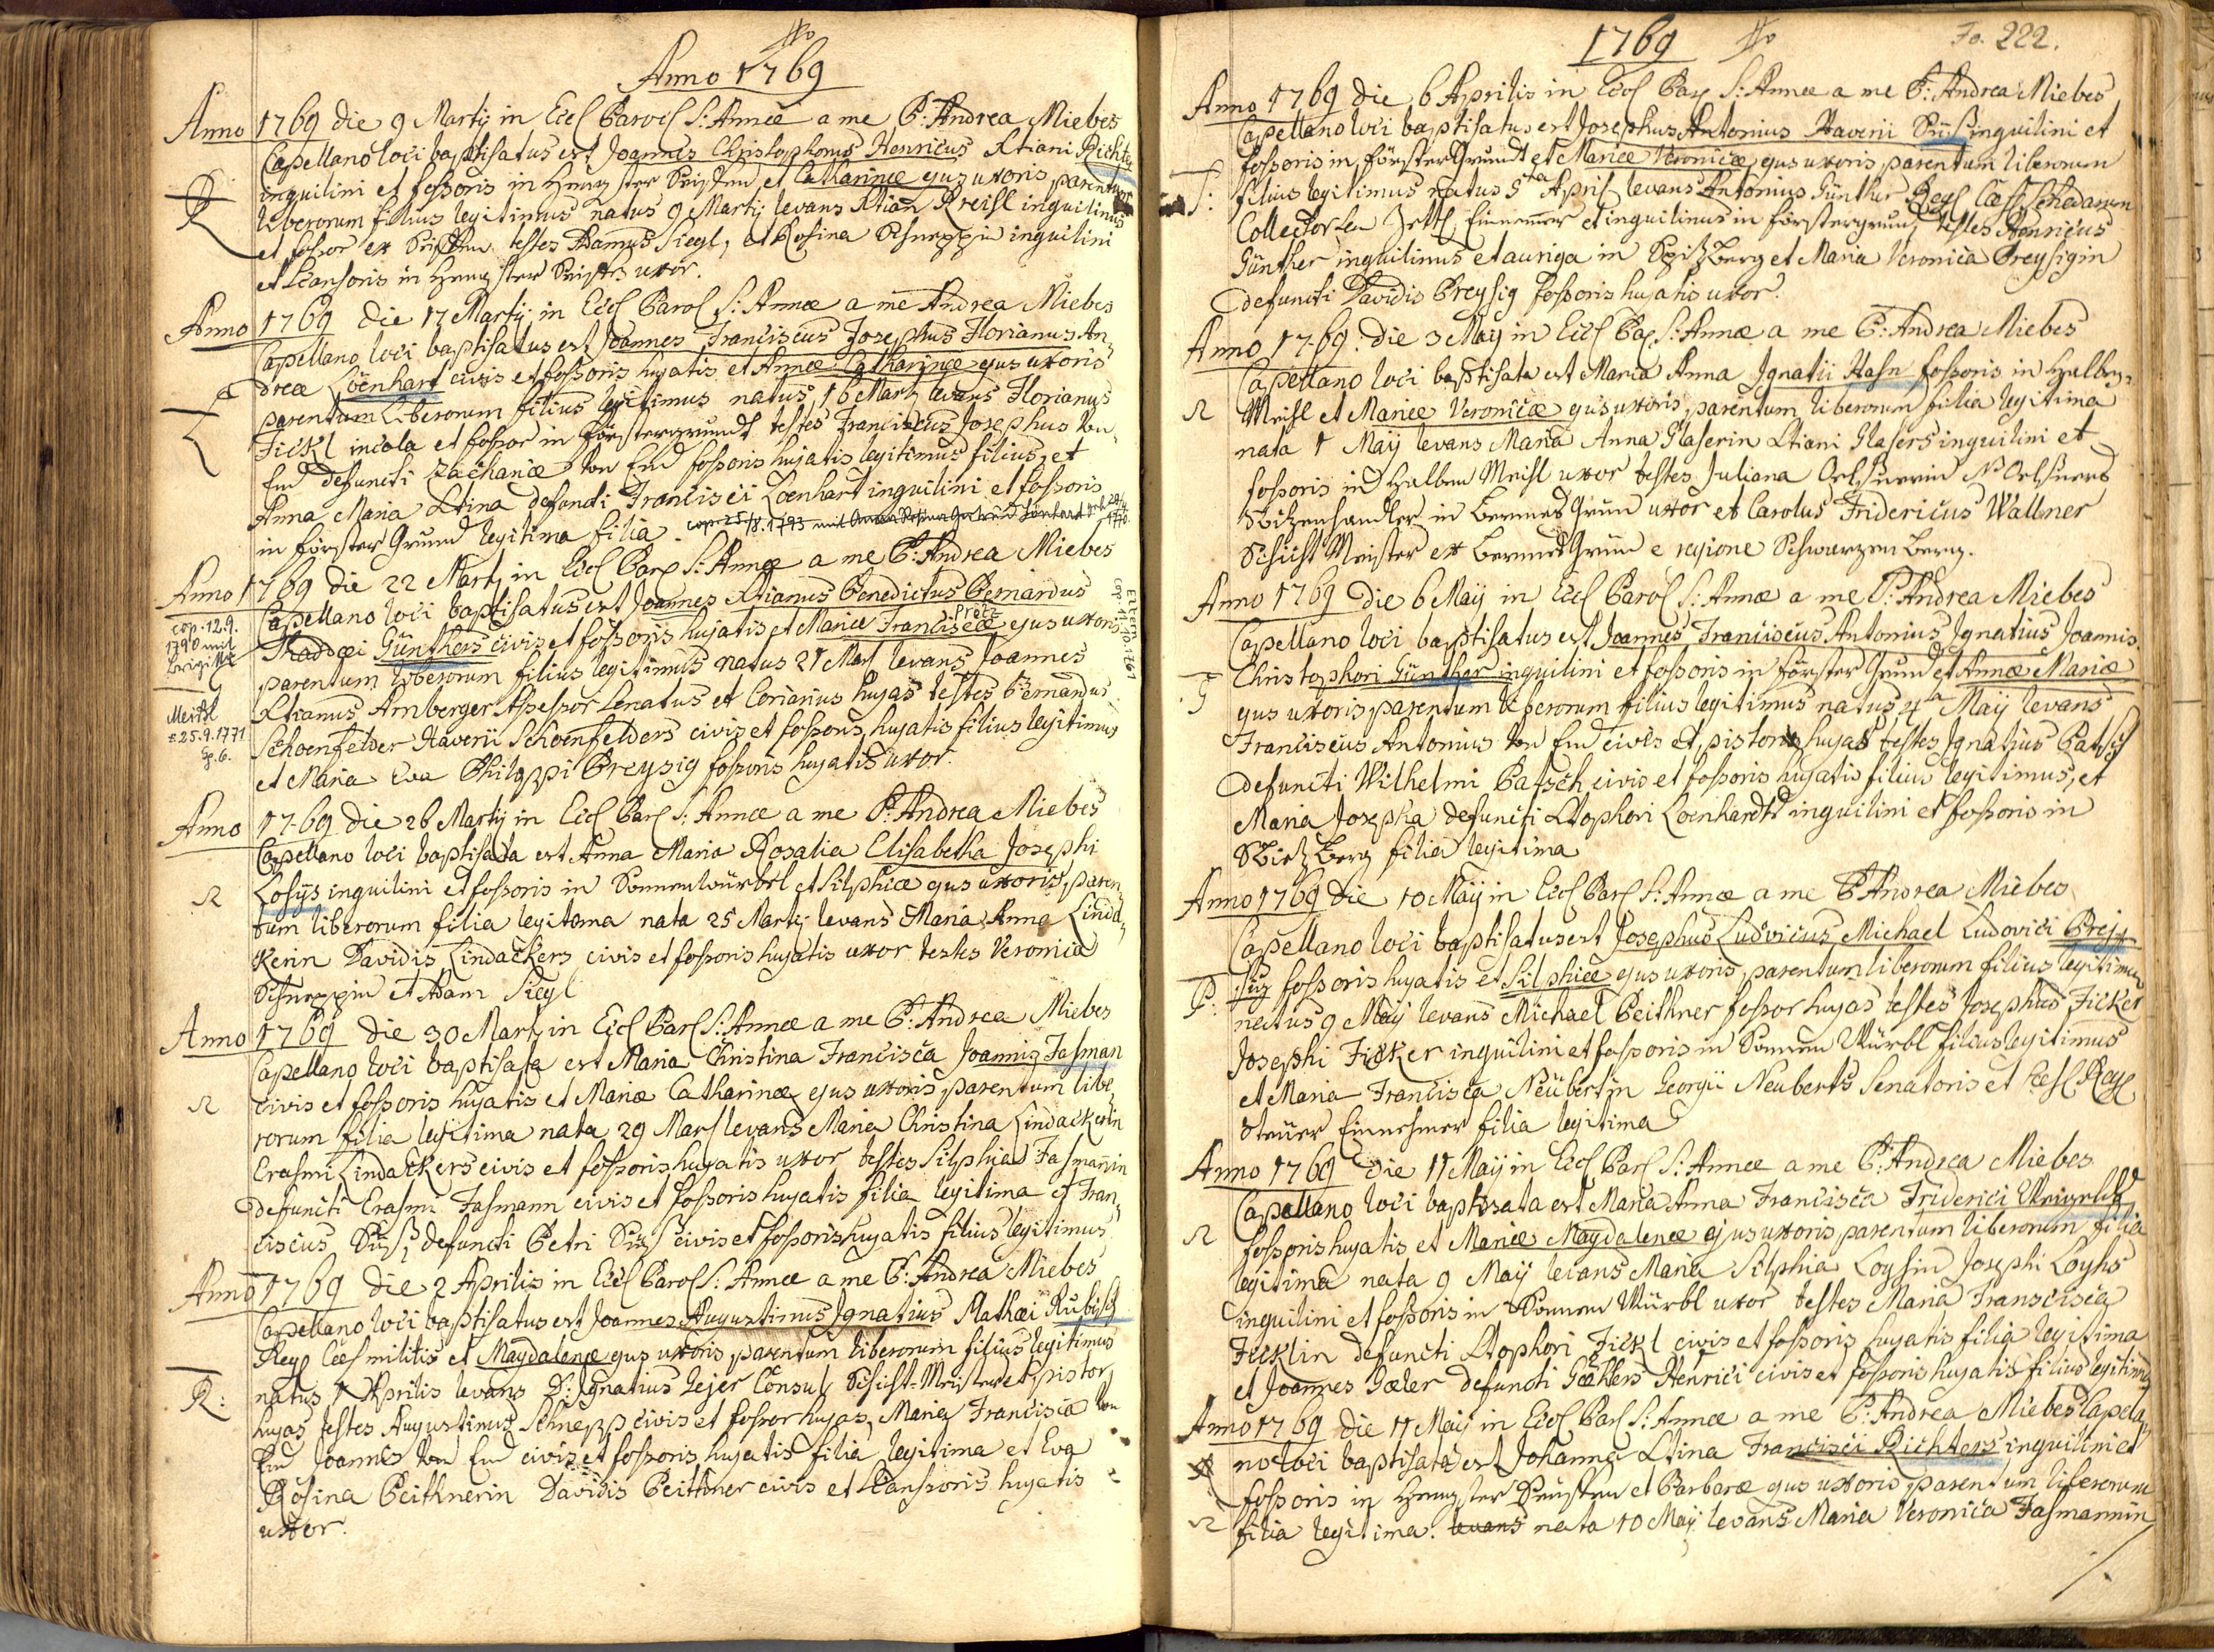 Anno 1769
Anno 1769 die 9 Martij in Eccl Paroch S: Annæ a me P: Andrea Miebes
Capellano loci baptisatus est Joannes Christophorus Henricus Xtiani Richter
inquilini et fossoris in Hengster et Catharinæ ejus uxoris parentum
R
liberorum filius legitimus natus 9 Martij levans Xtian Kreisl inquilinus
et fossor ex testes Adamus Siegl, et Rosina Schneppin inquilini
et Scansoris in Hengster uxor.
Anno 1769 die 17 Martij in Eccl Paroch S: Annæ a me Andrea Miebes
Capellano loci baptisatus est Joannes Franciscus Josephus Florianus An
dreæ Löenhart civis et fossoris hujatis et Annæ Catharinæ ejus uxoris
L
parentum liberorum filius legitimus natus 16 Martij levans Florianus
Fickl incola et fossor in Förstergrundt testes Franciscus Josephus Von
End defuncti Zachariæ Von End fossoris hujatis legitimus filius, et
Anna Maria Xtina defuncti Francisci Loenhart inquilini et fossoris
in Förster Grund legitima filia.
cop. 25/8. 1793 mit Anna Rosina
Anno 1769 die 22 Martij in Eccl Paroch S: Annæ a me P: Andrea Miebes
Capellano loci baptisatus est Joannes Xtianus Benedictus Bernardus
cop. 12.9.
1790 mit
Meisl
* 25.9.1771
G. 6.
Thaddæi Günthers civis et fossoris hujatis et Mariæ Franciscæ ejus uxoris
parentum liberorum filius legitimus natus 21 Mart levans Joannes
Xtianus Arnberger Assessor Senatus et Coriarius hujas testes Bernardus
Schoenfelder Xaverii Schoenfelders civis et fossoris hujatis filius legitimus
et Maria Eva Philippi Preysig fossoris hujatis uxor.
Eltern
cop. 1761
Anno 1769 die 26 Martij in Eccl Paroch S: Annæ a me P: Andrea Miebes
Capellano loci baptisata est Anna Maria Rosalia Elisabetha Josephi
Losys inquilini et fossoris in Sonnenwürbl et Silphiæ ejus uxoris, paren
tum liberorum filia legitima nata 25 Martij levans Maria Anna Linda
kerin Davidis Lindackers civis et fossoris hujatis uxor testes Veronica
Schneppin et Adam Siegl
Anno 1769 die 30 Martij in Eccl Paroch S: Annæ a me P: Andrea Miebes
Capellano loci baptisata est Maria Christina Francisca Joannis Fasman
civis et fossoris hujatis et Mariæ Catharinæ ejus uxoris parentum libe
rorum filia legitima nata 29 Mart levans Maria Christina Lindackerin
Erasmi Lindackers civis et fossoris hujatis uxor testes Silphia Fasmannin
defuncti Erasmi Fasmann civis et fossoris hujatis filia legitima et Fran
ciscus Süß, defuncti Petri Süß civis et fossoris hujatis filius legitimus
Anno 1769 die 2 Aprilis in Eccl Paroch S: Annæ a me P: Andrea Miebes
Capellano loci baptisatus est Joannes Augustinus Ignatius Mathæi Rubisch
Reg Cæs militis et Magdalenæ ejus uxoris, parentum liberorum filius legitimus
R:
natus 1 Aprilis levans D: Ignatius Lejer Consul, Schicht-Meister et pistor
hujas testes Augustinus Schnepp civis et fossor hujas, Maria Francisca Von
End Joannis Von End civis et fossoris hujatis filia legitima et Eva
Rosina Peithnerin Davidis Peithner civis et Scansoris hujatis
uxor.
1769
Fo. 222.
Anno 1769 die 6 Aprilis in Eccl Par S: Annæ a me P: Andrea Miebes
Capellano loci baptisatus est Josephus Antonius Xaverii Süß inquilini et
fossoris in Förster Grundt et Mariæ Veronicæ, ejus uxoris, parentum liberorum
S:
filius legitimus natus 5ta April levans Antonius Günther Reg Cæs Schedarum
Collector Zettl Einnemer et inquilinus in Förstergrund testes Henricus
Günther inquilinus et auriga in Spitzberg et Maria Veronica Preysigin
defuncti Davidis Preysig fossoris hujatis uxor.
Anno 1769 die 3 Maij in Eccl Par S: Annæ a me P: Andrea Miebes
Capellano loci baptisata est Maria Anna Ignatii Hahn fossoris in Halben
Meisl et Mariæ Veronicæ ejus uxoris, parentum liberorum filia legitima
nata 1 Maij levans Maria Anna Glaserin Xtiani Glasers inquilini et
fossoris in Halben Meisl uxor testes Juliana
Spitzenhandler in Bermes Grün uxor et Carolus Fridericus Wallner
Schicht Meister ex Bermes Grün e regione Schwarzen Berg.
Anno 1769 die 6 Maij in Eccl Paroch S: Annæ a me P: Andrea Miebes
Capellano loci baptisatus est Joannes Franciscus Antonius Ignatius Joannis
Christophori Günther inquilini et fossoris in Förster Grund et Annæ Mariæ
G
ejus uxoris, parentum liberorum filius legitimus natus 4ta Maij levans
Franciscus Antonius Von End civis et pistor hujas testes Ignatius Patsch
defuncti Wilhelmi Patsch civis et fossoris hujatis filius legitimus, et
Maria Josepha defuncti Xtophori Loenhardt inquilini et fossoris in
Spitz Berg filia legitima
Anno 1769 die 10 Maij in Eccl Paroch S: Annæ a me P Andrea Miebes
Capellano loci baptisatus est Josephus Ludovicus Michael Ludovici Prey
P:
sig fossoris hujatis et Silphiæ ejus uxoris, parentum liberorum filius legitimus
natus 9 Maij levans Michael Peithner fossor hujas testes Josephus Ficker
Josephi Ficker inquilini et fossoris in Sonnen Würbl filius legitimus
et Maria Francisca Neubertin Georgii Neuberts Senatoris et Cæs Reg
Steuer Einnehmer filia legitima
Anno 1769 die 11 Maij in Eccl Paroch S: Annæ a me P: Andrea Miebes
Capellano loci baptisata est Maria Anna Francisca Friderici
fossoris hujatis et Mariæ Magdalenæ ejus uxoris parentum liberorum filia
legitima nata 9 Maij levans Maria Silphia Loysin Josephi Loyhs
inquilini et fossoris in Sonnen Würbl uxor testes Maria Franscisca
Ficklin defuncti Xtophori Fickl civis et fossoris hujatis filia legitima
et Joannes Gæler defuncti Gæhlers Henrici civis et fossoris hujatis filius legitimus
Anno 1769 die 11 Maij in Eccl Paroch S: Annæ a me P: Andrea Miebes Capela
no loci baptisata est Johanna Xtina Francisci Richters inquilini et
fossoris in Hengster et Barbaræ ejus uxoris, parentum liberorum
filia legitima. levans nata 10 Maij levans Maria Veronica Fasmannin